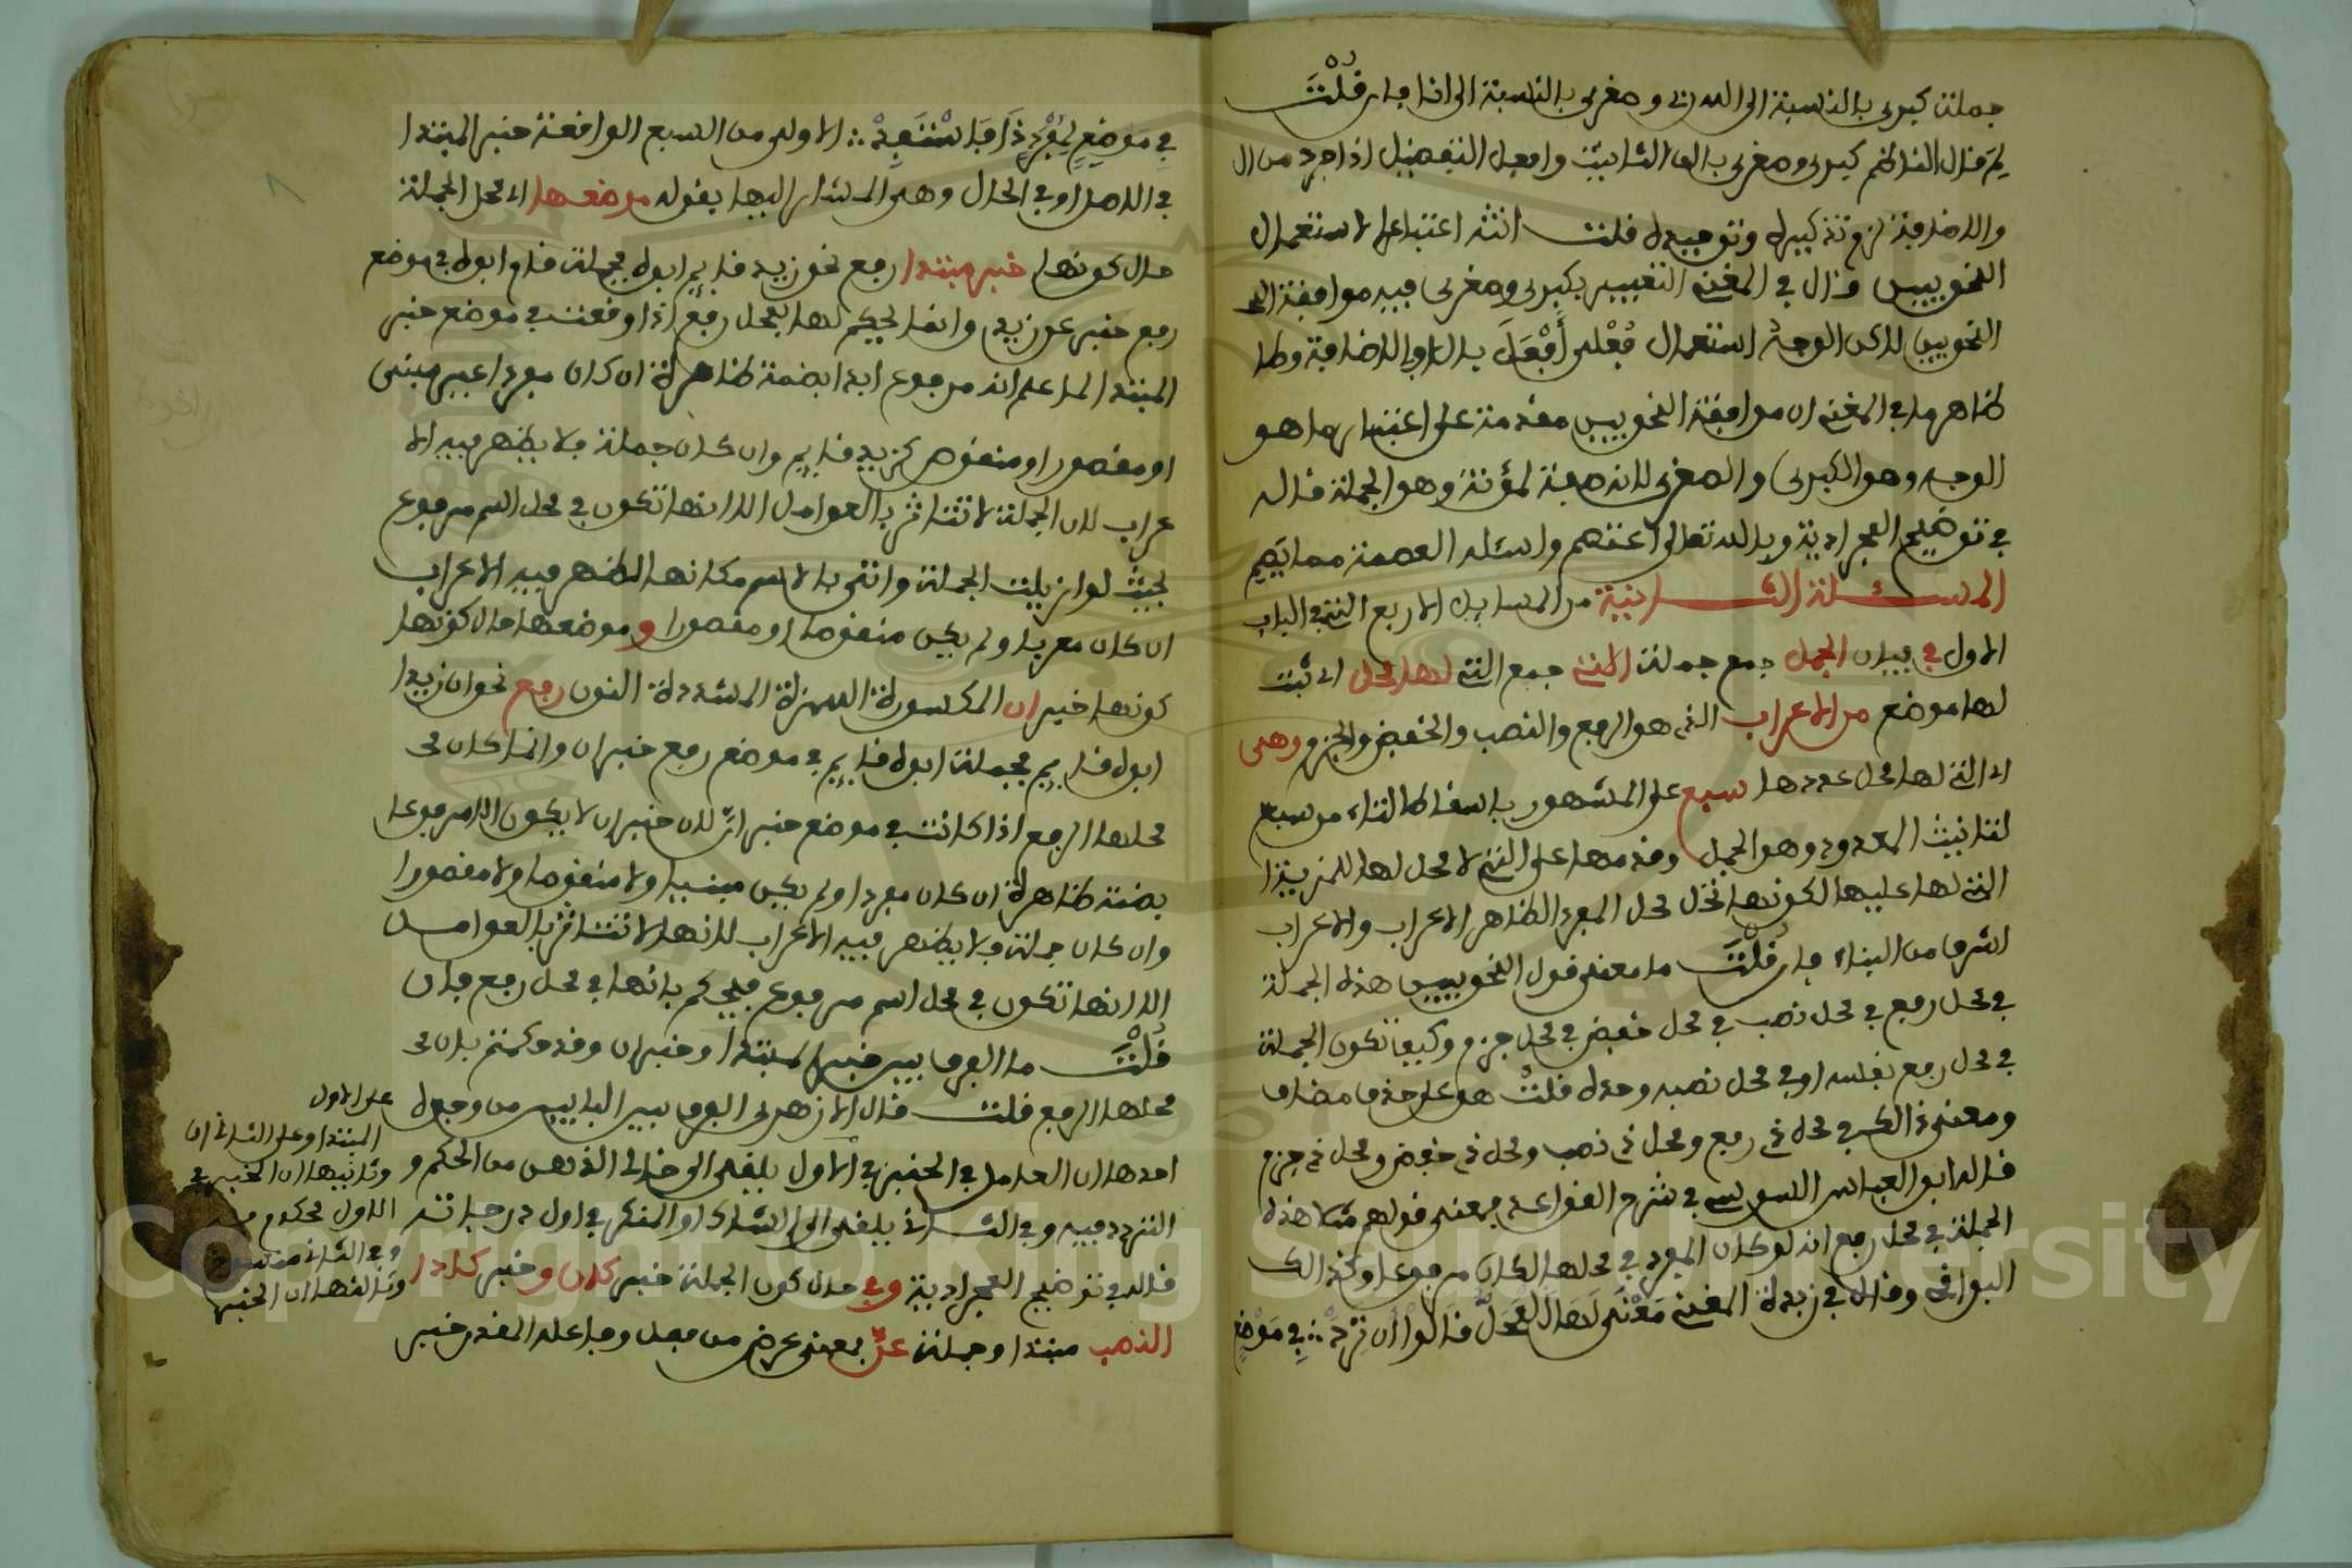 جملته كبرى بالنسبة الى الثاني وصغرى بالنسبة الى انا فان قلت
لم قال الناظم كبرى وصغرى بالف التانيث وافعل التفضيل اذا جرد من ال
والاضافة لزم تذكيره وتوحيده قلت انثه اعتبارا لاستعمال
النحويين وقال في المغني التعبير بكبرى وصغرى فيه موافقة
النحويين لاكن الوجه استعمال فعلى أفعل بال او بالاضافة
ظاهر ما في المغني ان موافقة النحويين مقدمة على اعتبار ما هو
الوجه وهو الكبرى والصغرى لانه صفة لمؤنث وهو الجملة قاله
في توضيح المجرادية وبالله تعالى اعتصم واسئله العصمة مما يصم
المسئلة الثانية من المسايل الاربع التي في الباب
الاول في بيان الجمل جمع جملة التي جمع التي لها محل اي ثبت
لها موضع من الاعراب الذي هو الرفع والنصب والخفض والجزم وهي
اي التي لها محل عددها سبع على المشهور باسقاط التاء من سبع
لتانيث المعدود وهو الجمل وقدمها على التي لا محل لها للمزية
التي لها عليها لكونها تحل محل المفرد الظاهر الاعراب والاعراب
اشرف من البناء فان قلت ما معنى قول النحويين هذه الجملة
في محل رفع في محل نصب في محل خفض في محل جزم وكيف تكون الجملة
في محل رفع بنفسه او في محل نصبه وحده قلت هو على حذف مضاف
ومعنى ذالك في محل ذي رفع ومحل ذي نصب ومحل ذي خفض ومحل ذي جزم
قاله ابو العباس السوسي في شرح القواعد فمعنى قولهم مثلا هذه
الجملة في محل رفع انه لو كان المفرد في محلها لكان مرفوعا وكذالك
البواقي وقال في زبدة المغني معنى لها المحل قالوا ان ترد في موضع
في موضع لمفرد ذا فاستفد الاولى من السبع الواقعة خبر المبتدا
في الاصل او في الحال وهي المشار اليها بقوله موضعها اي محل الجملة
حال كونها خبر مبتدا رفع نحو زيد قايم ابوه فجملة قام ابوه في موضع
رفع خبر عن زيد وانما يحكم لها بمحل رفع اذا وقعت في موضع خبر
المبتدا لما علم انه مرفوع ابدا بضمة ظاهرة ان كان مفردا غير مبني
او مقصور او منقوص كزيد قايم وان كان جملة فلا يظهر فيه الا
عراب لان الجملة لا تتاثر بالعوامل الا انها تكون في محل اسم مرفوع
بحيث لو ازيلت الجملة واتي بالاسم مكانها لظهر فيه الاعراب
ان كان معربا ولم يكن منقوصا او مقصورا و موضعها حال كونها
كونها خبر ان المكسورة الهمزة المشددة النون رفع نحو ان زيدا
ابوه قايم فجملة ابوه قايم في موضع رفع خبر ان وانما كان مح
محلها الرفع اذا كانت في موضع خبر ان لان خبر ان لا يكون الا مرفوعا
بضمة ظاهرة ان كان مفردا ولم يكن مبنيا ولا منقوصا ولا مقصورا
وان كان جملة فلا يظهر فيه الاعراب لانها لا تتاثر بالعوامل
الا انها تكون في محل اسم مرفوع فيحكم بانها في محل رفع فان
قلت ما الفرق بين خبر المبتدا وخبر ان وقد حكمتم بان مح
محلها الرفع قلت قال الازهري الفرق بين البابين من وجوه
احدها ان العامل في الخبر في الاول يلقى الى خالي الذهن من الحكم و
التردد فيه وفي الثاني يلقى الى الشاك او المنكر في اول درجاته
قاله في توضيح المجرادية وفي حال كون الجملة خبر كان وخبر كادا
الذهب مبتدا وجملة عن بمعنى عرض من فعل وفاعله المقدر خبر
على الاول
المبتدا وعلى الثاني ان
وثانيها ان الخبر في
الاول محكوم به
وفي الثاني منسوخ
وثالثها ان الخبر